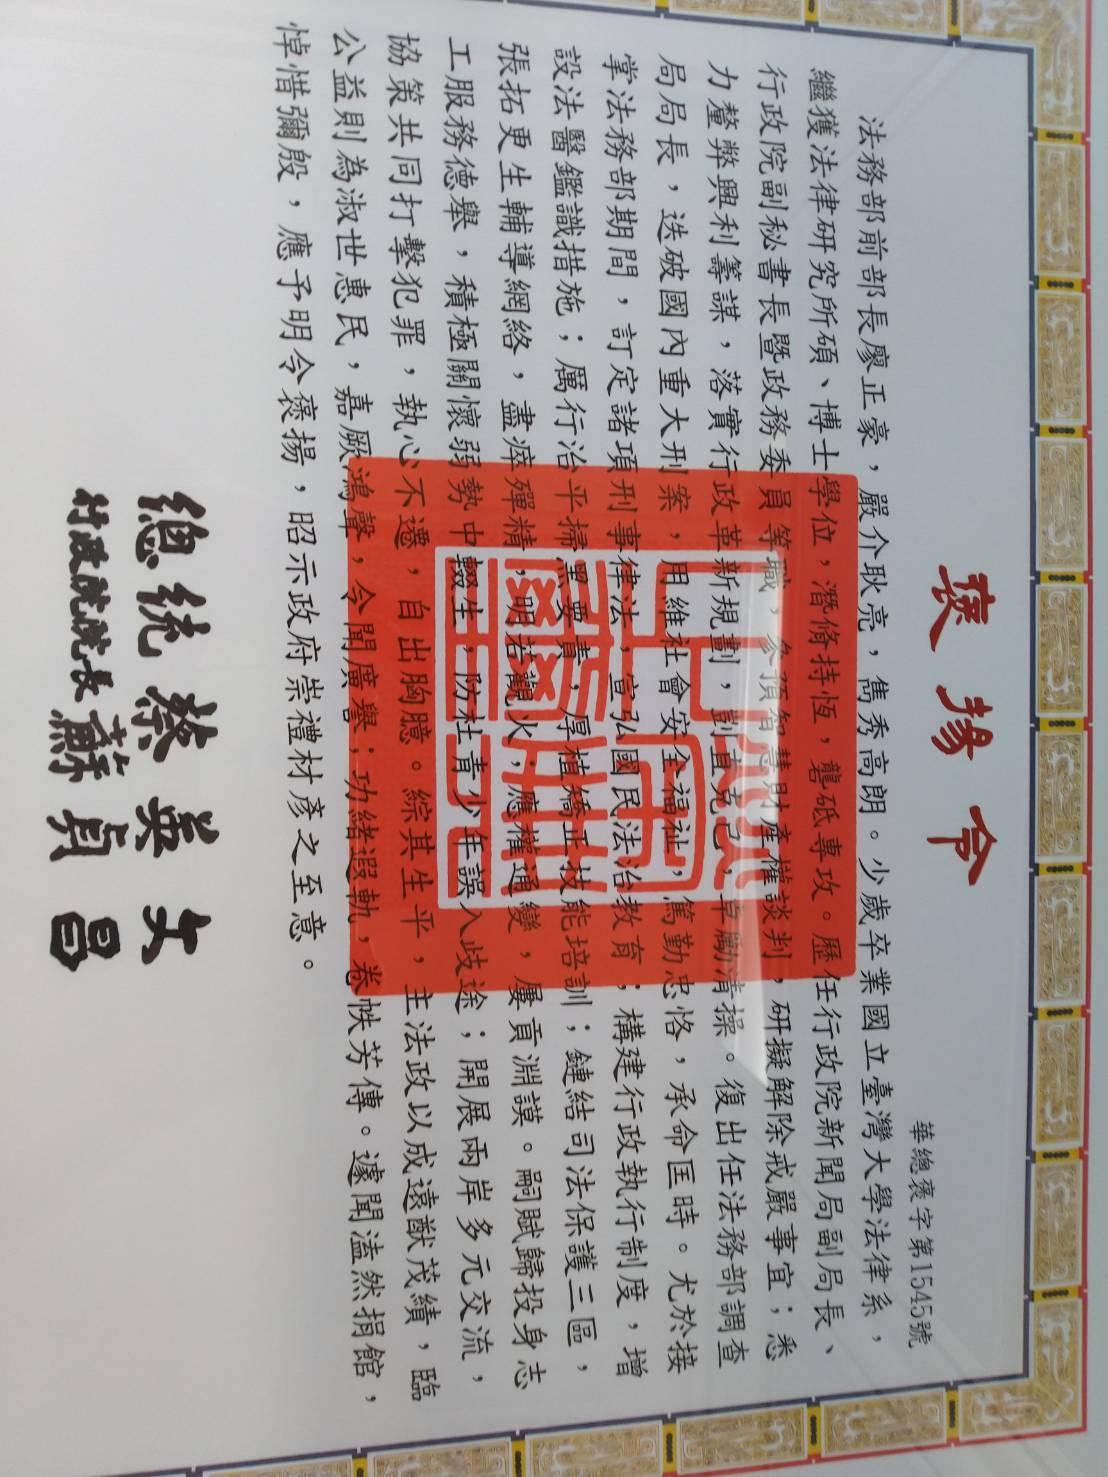 褒揚令
華總褒字第1545號
法務部前部長廖正豪，嚴介耿亮，雋秀高朗。少歲卒業國立臺灣大學法律系，
繼獲法律研究所碩、博士學位，潛脩持恆，礱砥專攻。歷任行政院新聞局副局長、
行政院副秘書長暨政務委員等職，參預智慧財產權談判，研擬解除戒嚴事宜；悉
力釐弊興利籌謀，落實行政革新規劃，剴直克己，卓勵清操。復出任法務部調查
局局長，迭破國內重大刑案，用維社會安全福祉，篤勤忠恪，承命匡時。尤於接
掌法務部期間，訂定諸項刑事律法，宣弘國民法治教育；構建行政執行制度，增
設法醫鑑識措施；厲行治平掃黑要責，厚植矯正技能培訓；鏈結司法保護三區，
張拓更生輔導網絡，盡瘁殫精，明若觀火；應權通變，屢貢淵謨。嗣賦歸投身志
工服務德舉，積極關懷弱勢中輟生，防杜青少年誤入歧途；開展兩岸多元交流，
協策共同打擊犯罪，執心不遷，自出胸臆。綜其生平，主法政以成遠猷茂績，臨
公益則為淑世惠民，嘉厥鴻聲，令聞廣譽；功緒遐軌，卷帙芳傳。遽聞溘然捐館，
悼惜彌殷，應予明令褒揚，昭示政府崇禮材彥之至意。
總統 蔡英文
行政院院長 蘇貞昌